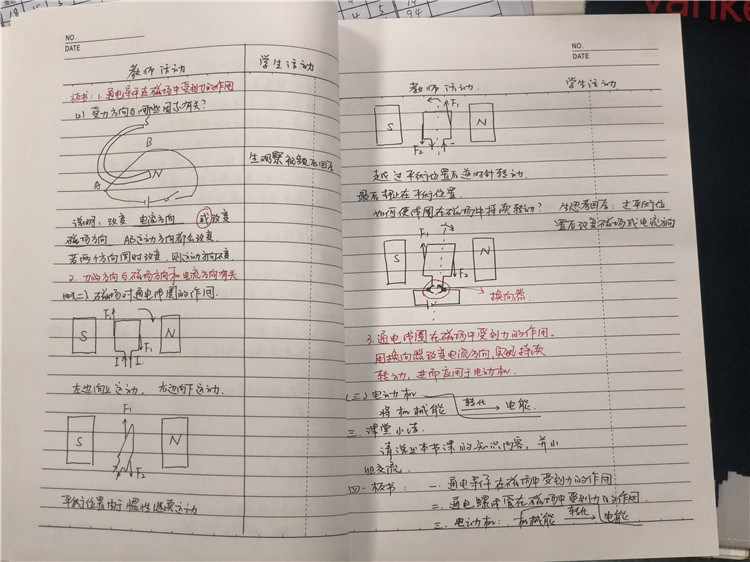 NO.
DATE
教师活动 学生活动
板书:1.通电导体在磁场中受到力的作用
(1)受力方向与哪些因素有关?
B
N
A
生观察视频后回答
说明:改变 电流方向 或改变
磁场方向 AB运动方向都会改变.
若两个方向同时改变,则运动方向不变.
2.力的方向与磁场方向和电流方向有关
(二)磁场对通电线圈的作用.
F1
S N
F1
I I
左边向上运动, 右边向下运动.
F1
S N
F2
平衡位置由于惯性继续运动
NO.
DATE
教师活动. 学生活动
F1
S N
F2
越过平衡位置后逆时针转动
最后静止在平衡位置
如何使线圈在磁场中持续转动? 生思考回答:过平衡位
置后改变磁场或电流方向
F1
S N
F2
换向器
3.通电线圈在磁场中受到力的作用.
用换向器改变电流方向,实现持续
转动,进而应用于电动机.
(三)电动机
将机械能 转化 电能.
三.课堂小结.
请说出本节课的知识内容,并小
组交流.
四.板书: 一.通电导体在磁场中受到力的作用
二.通电螺线管在磁场中受到力的作用.
三.电动机: 机械能 转化 电能.